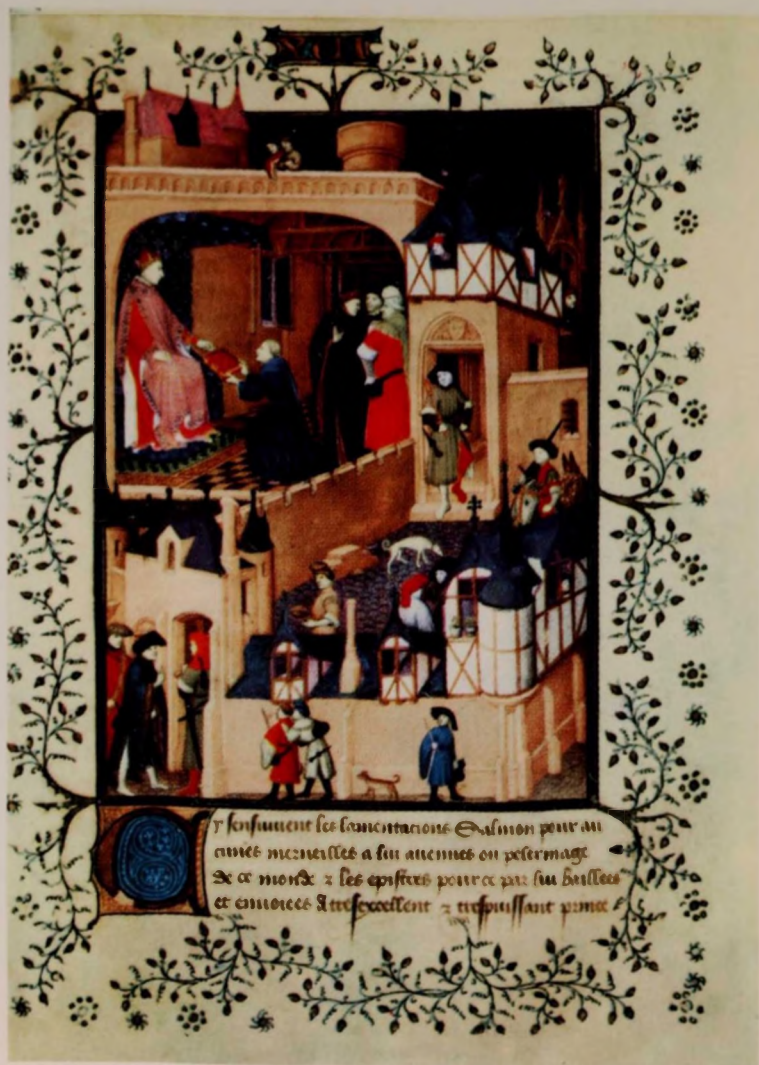 Cy sensuivent les lamentacions Salmon pour au
cunes merveilles a lui avenues ou pelerinage
de ce monde & les epistres pour ce par lui baillees
et envoiees A tresexcellent & trespuissant prince